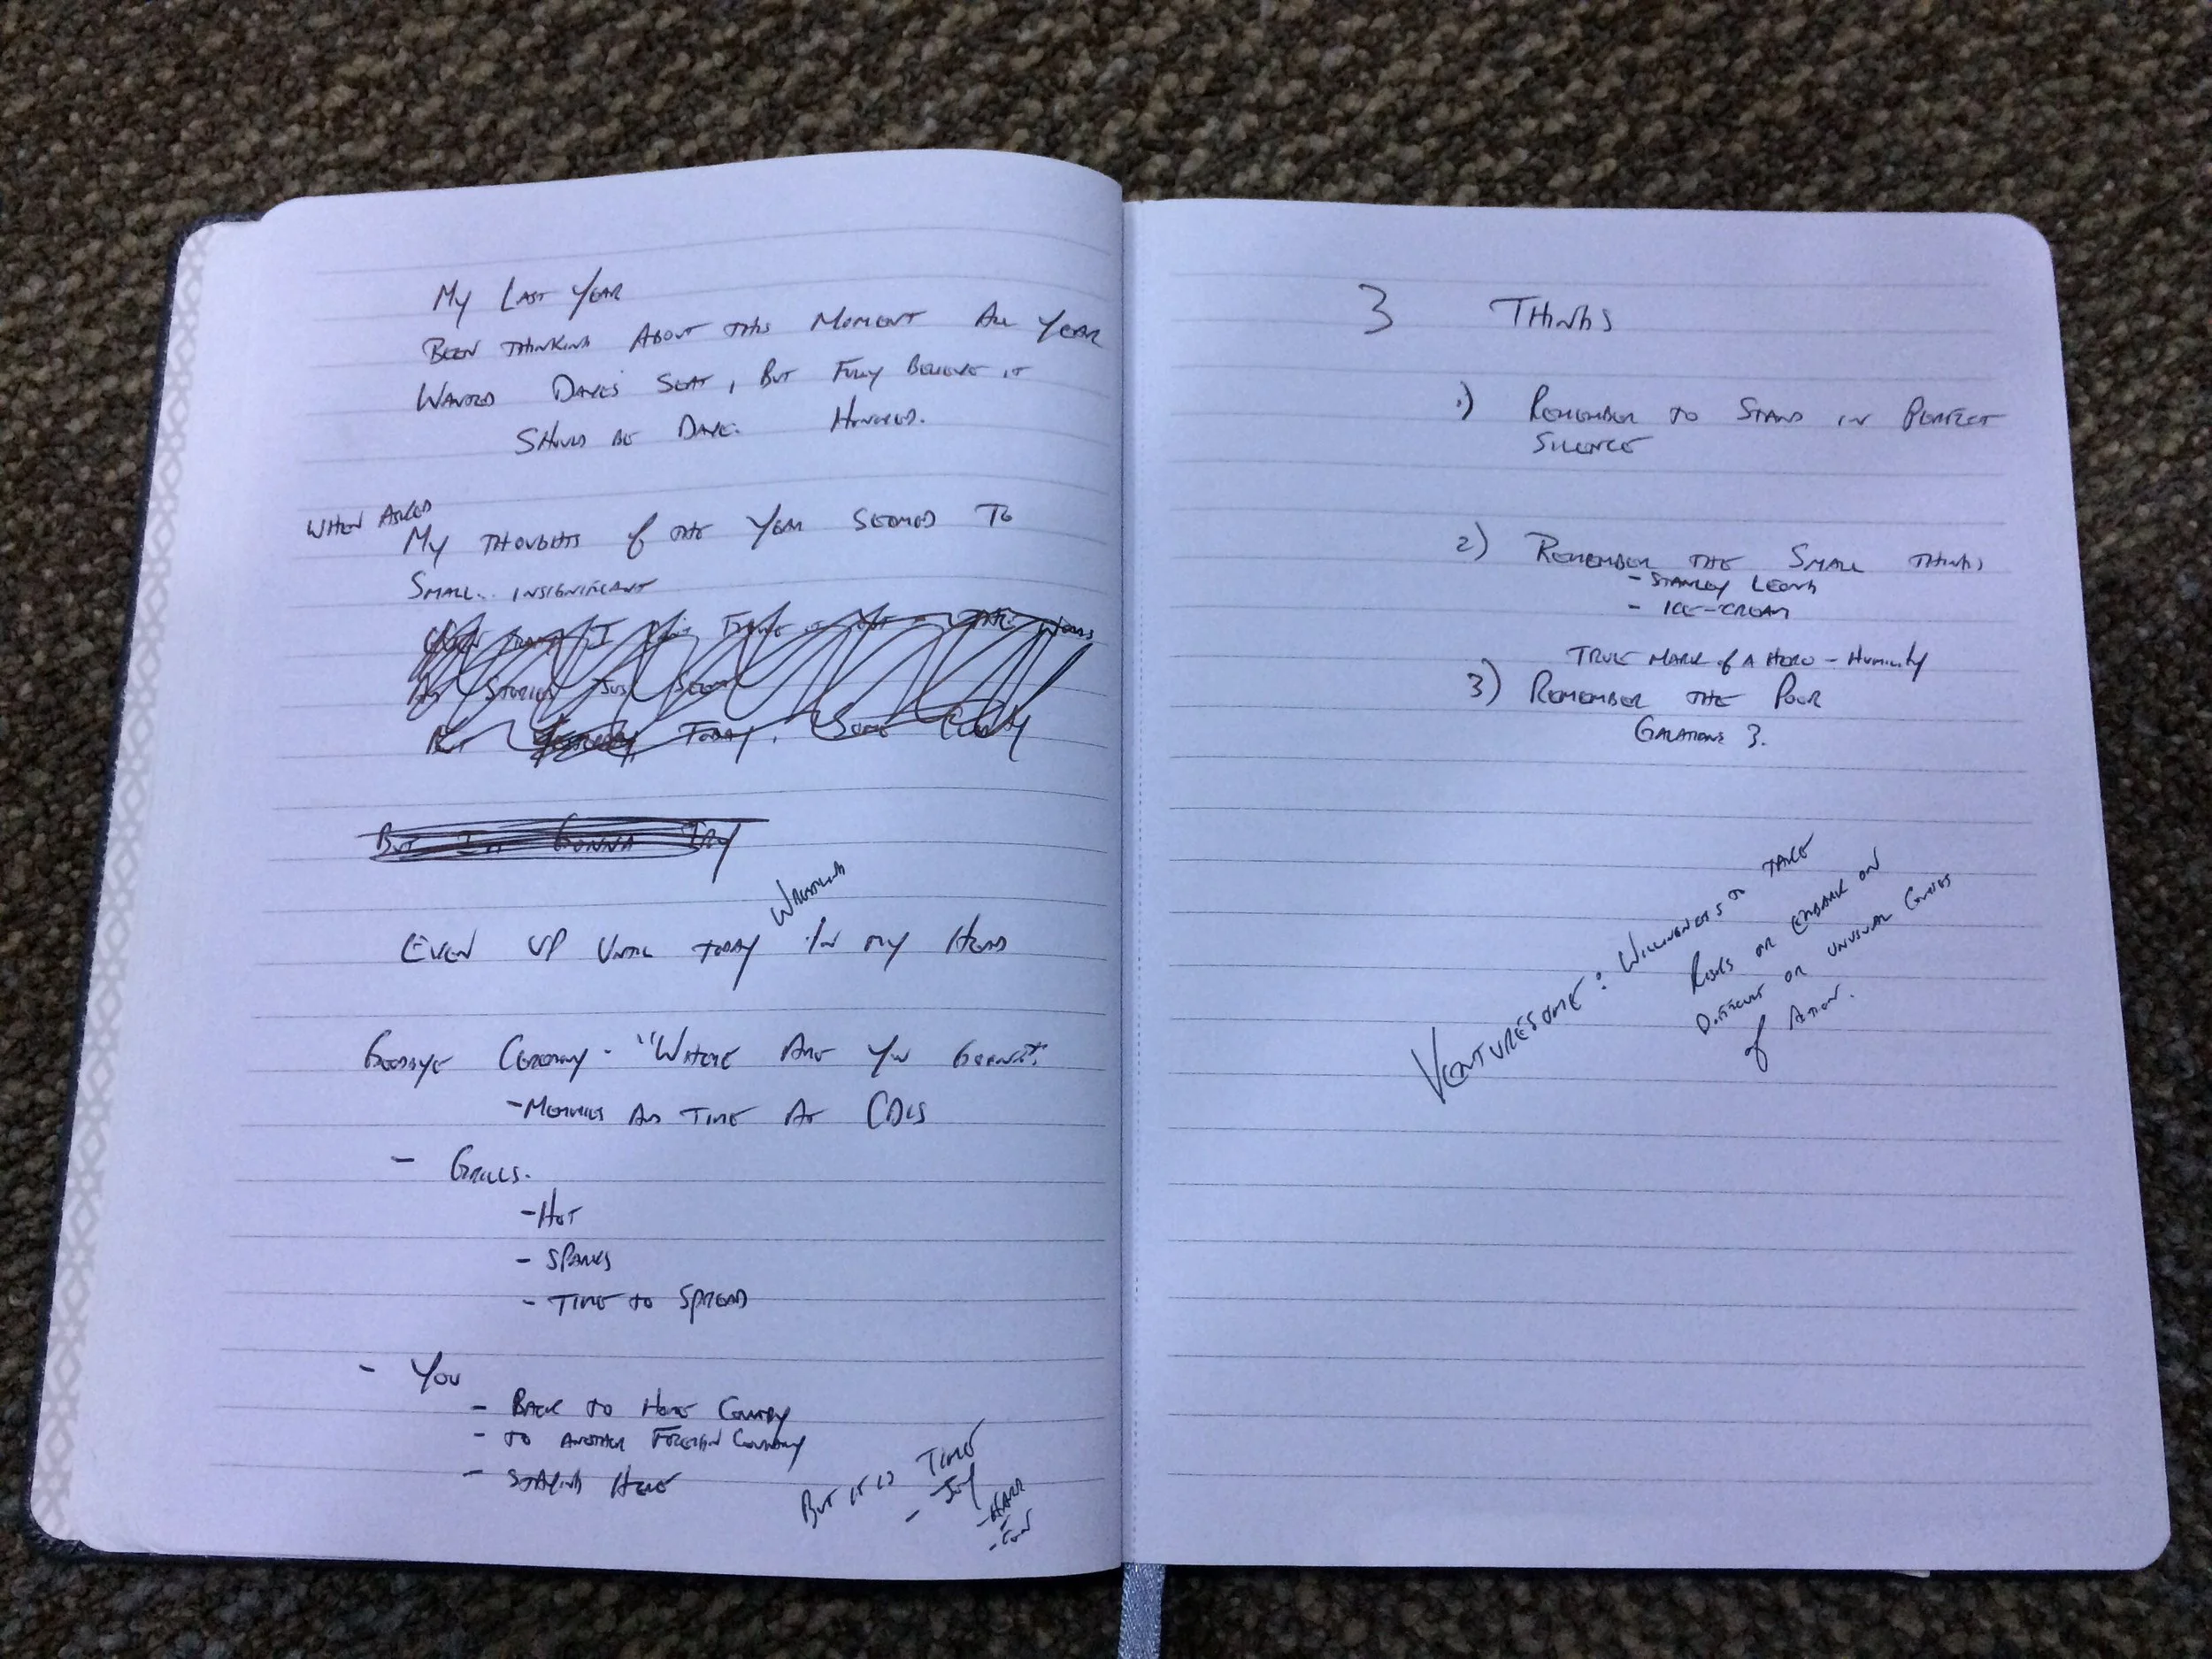 My Last Year
Been thinking about this moment all year
Wanted Dave's seat, but fully believe it
should be Dave. Honored.
When asked
My thoughts of the year seemed to
small.. insignificant
But today, some
But I'm gonna try
Wrestling
Even up until today in my head
Goodbye Ceremony - "Where are you going?"
- Memories and time at CDLS
- Grills.
- Hot
- Sparks
- Time to spread
- You
- Back to home country
- to another foreign country
- staying here
But it is time
- Joy
- Hard
3 Things
1) Remember to stand in perfect
silence
2) Remember the small things
- Stanley Leong
- Ice-cream
True mark of a hero - Humility
3) Remember the poor
Galatians 3.
Venturesome: Willingness to take
risks or embark on
difficult or unusual courses
of action.